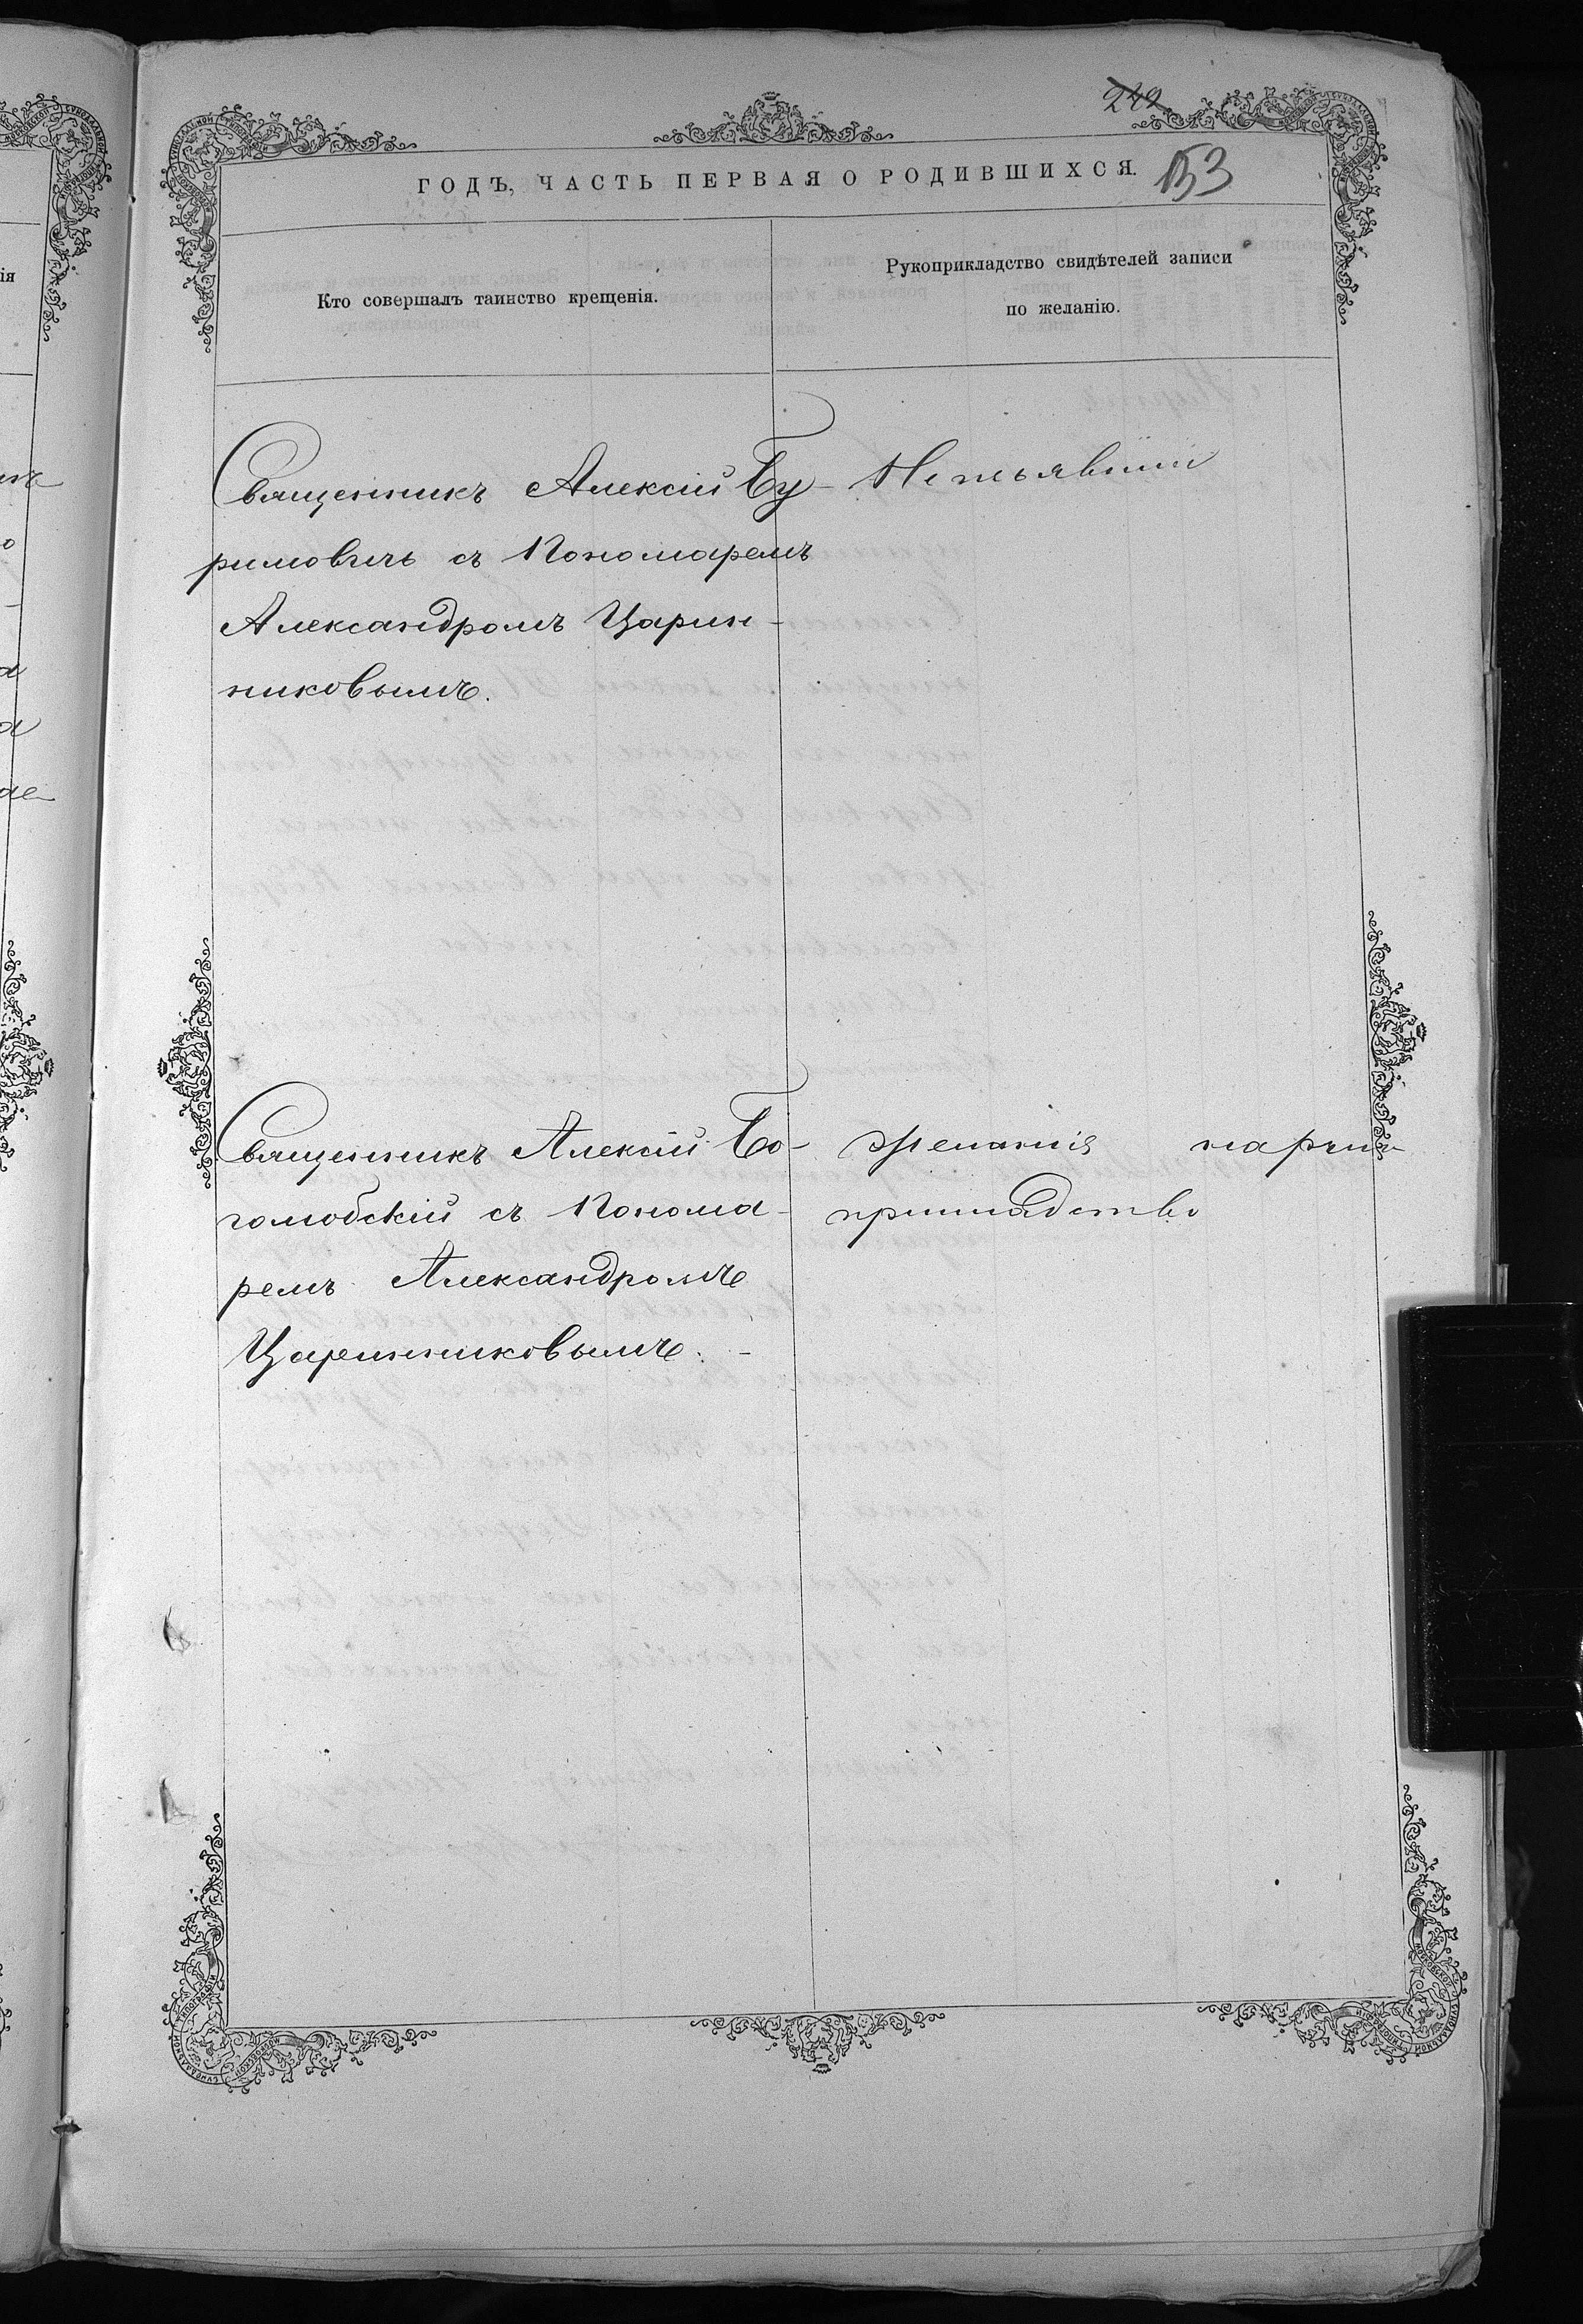 249
ГОДЪ, ЧАСТЬ ПЕРВАЯ О РОДИВШИХСЯ. 153
Кто совершалъ таинство крещенія.
Рукоприкладство свидѣтелей записи
по желанію.
Священникъ Алексій Бу-
римовичъ съ Пономаремъ
Александромъ Царин-
никовымъ.
Священникъ Алексій Бо-
голюбскій съ Понома-
ремъ Александромъ
Царинниковымъ. -
Неизъявили
желанія